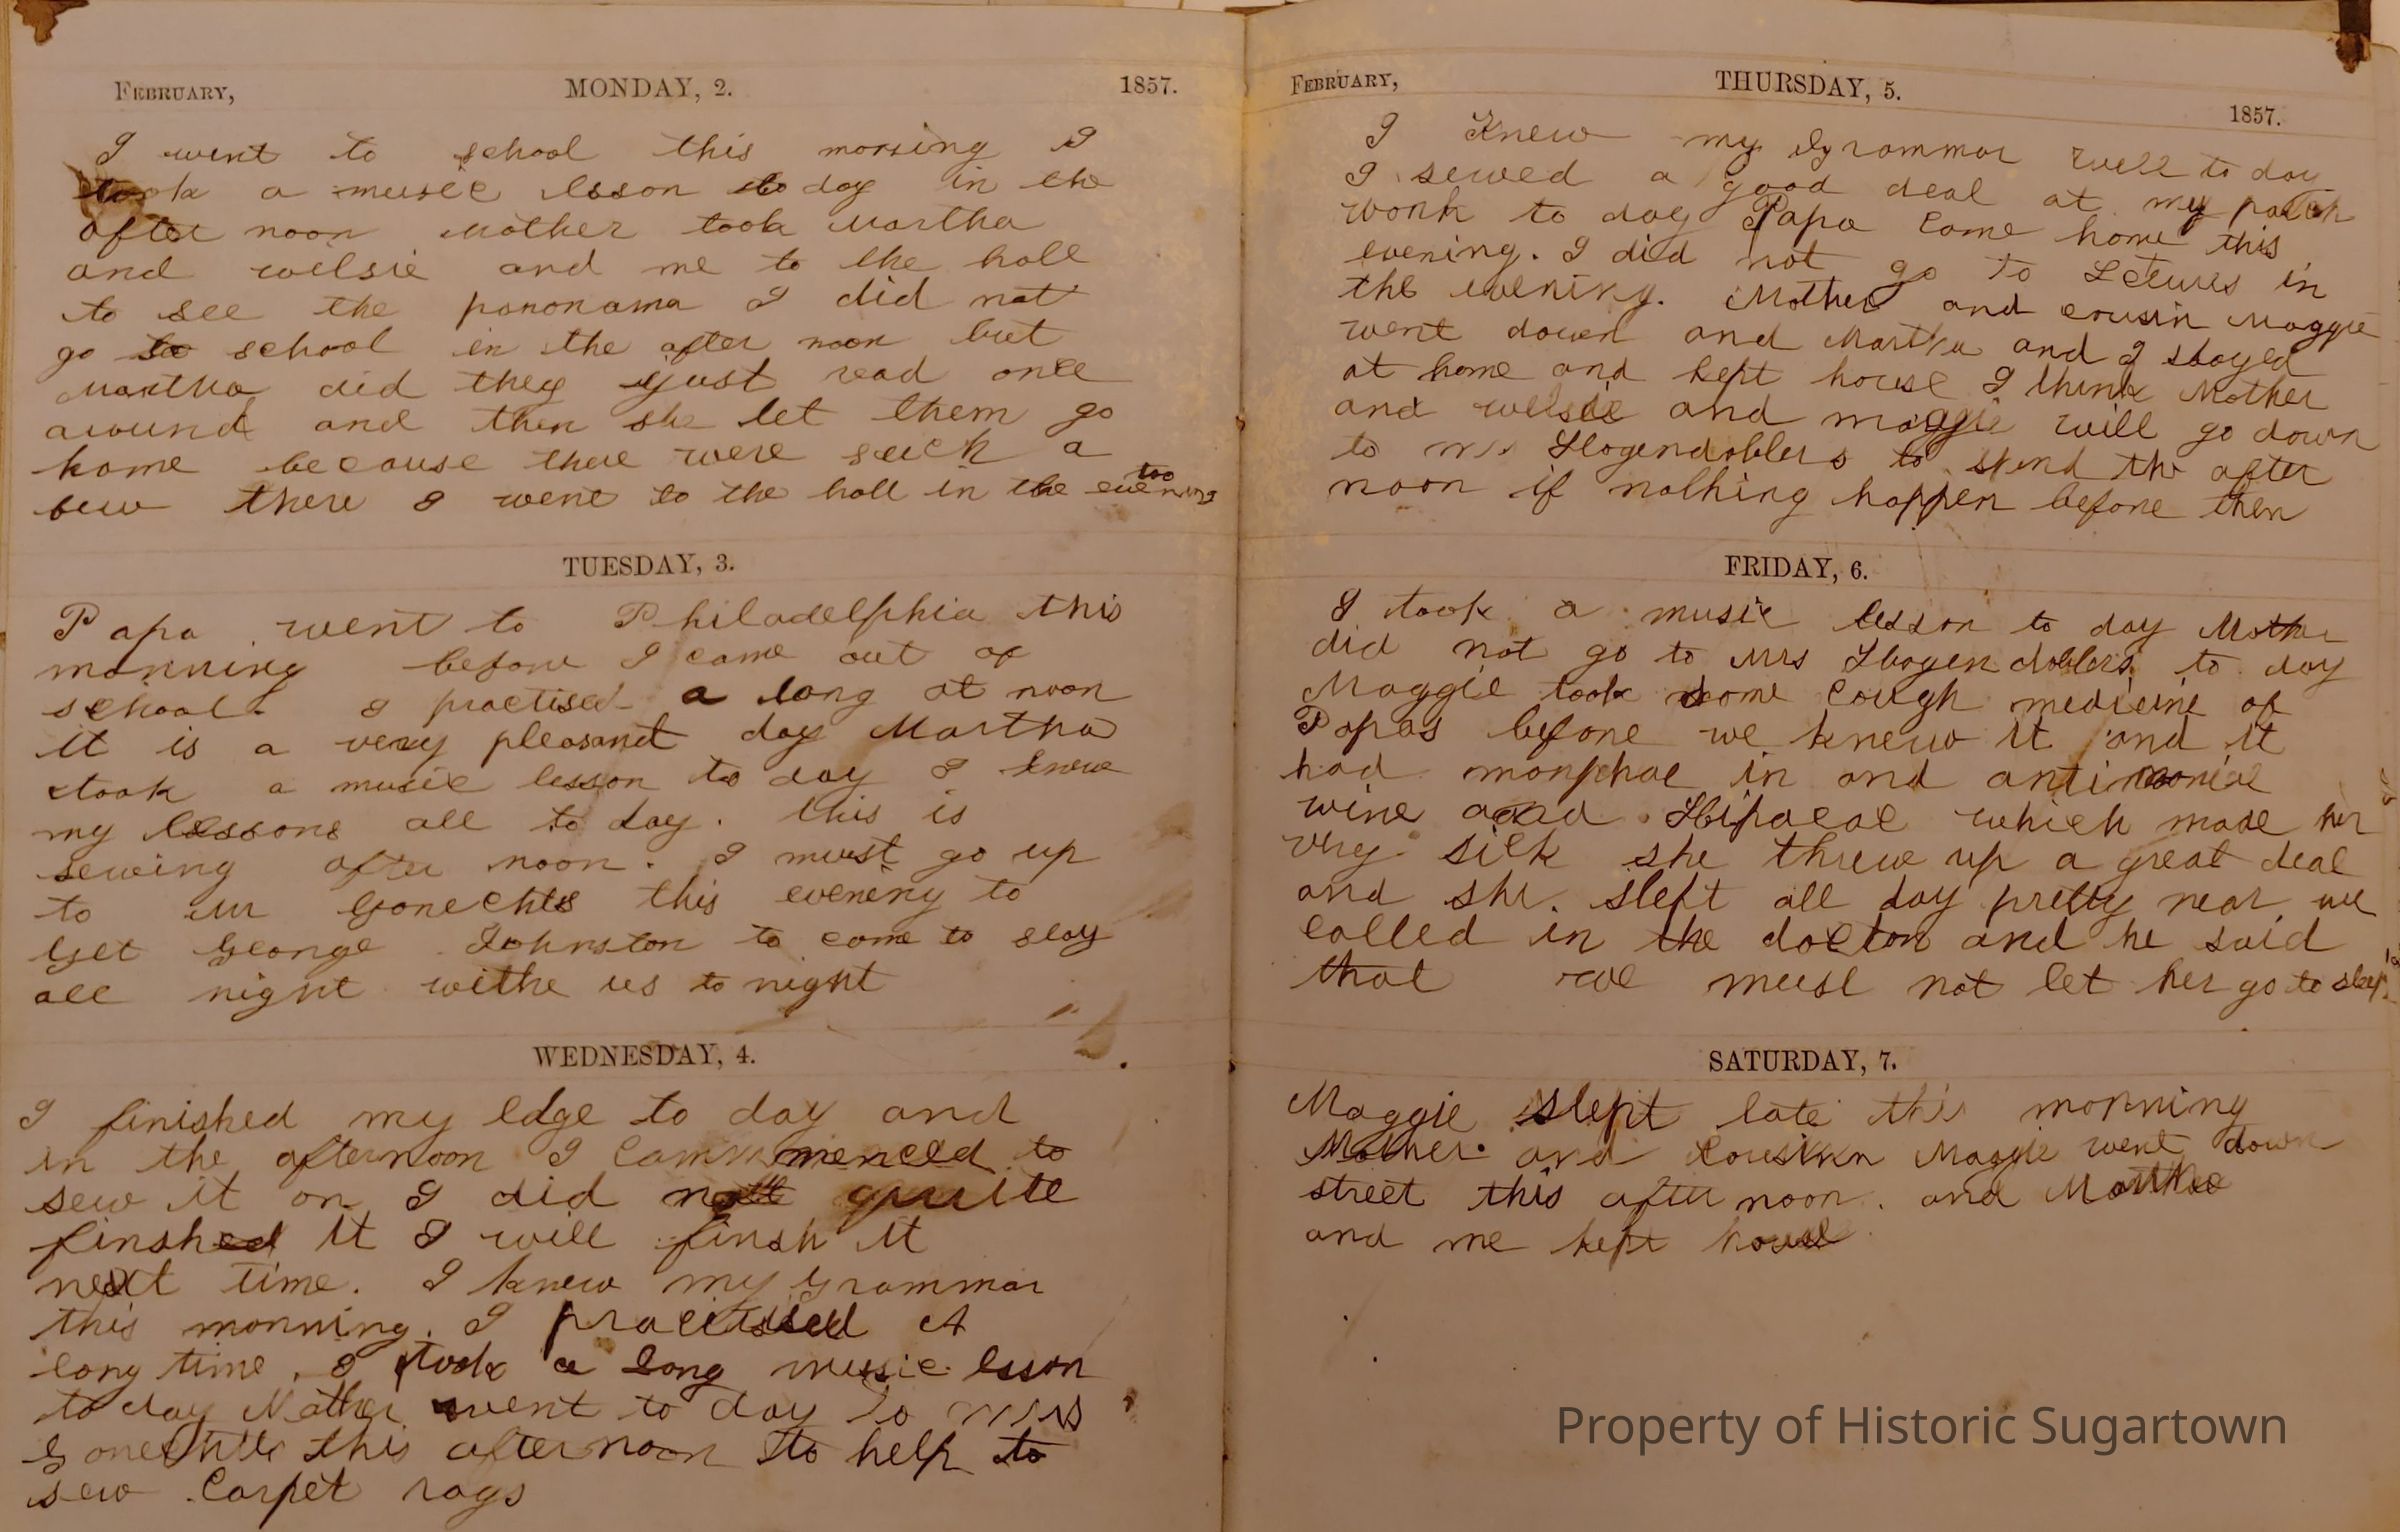 FEBRUARY, MONDAY, 2. 1857.
I went to school this morning I
took a music lsson to day in the
after noon Mother took Martha
and welsie and me to the hall
to see the panonama I did not
go to school in the after noon but
Martha did they just read once
around and then she let them go
home because there were such a
few there I went to the hall in the evening too
TUESDAY, 3.
Papa went to Philadelphia this
morning before I came out of
school. I practised a long at noon
it is a very pleasant day Martha
took a music lesson to day I knew
my lessons all to day. this is
sewing after noon. I must go up
to Mr Gonechts this evening to
get George Johnston to come to stay
all night withe us to night
WEDNESDAY, 4.
I finished my edge to day and
in the afternoon I commmenced to
sew it on I did not quite
finshed it I will finsh it
next time. I knew my grammar
this morning. I practised A
long time. I took a long music lsson
to day Mother went to day to mrs
Gonechts this afternoon to help to
sew carpet rags
FEBRUARY, THURSDAY, 5. 1857.
I Knew my grammar well to day
I sewed a good deal at my patch
work to day Papa come home this
evening. I did not go to Letures in
the evening. Mother and cousin Maggie
went down and Martha and I stayed
at home and kept house I think Mother
and welsie and maggie will go down
to mrs Hogendoblers to spend the after
noon if nothing happen before then
FRIDAY, 6.
I took a music lesson to day Mother
did not go to Mrs Hogendoblers to day
Maggie took some cough medicine of
Papas before we knew it and it
had morphae in and antimonial
wine and Hipacac which made her
very sick she threw up a great deal
and she slept all day pretty near we
called in the doctor and he said
that we must not let her go to sleep
SATURDAY, 7.
Maggie slept late this morning
Mother and Cousinn Maggie went down
street this after noon. and Martha
and me kept house
Property of Historic Sugartown